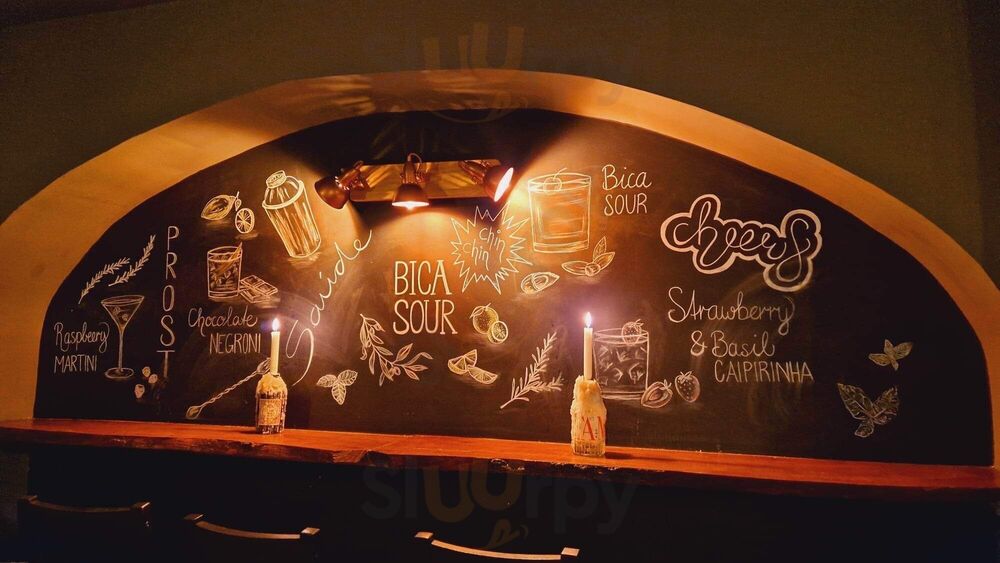 Raspberry
MARTINI
PROST
Chocolate
NEGRONI
Saúde
BICA
SOUR
chin
chin
Bica
SOUR
cheers
Strawberry
& Basil
CAIPIRINHA
Sluurpy